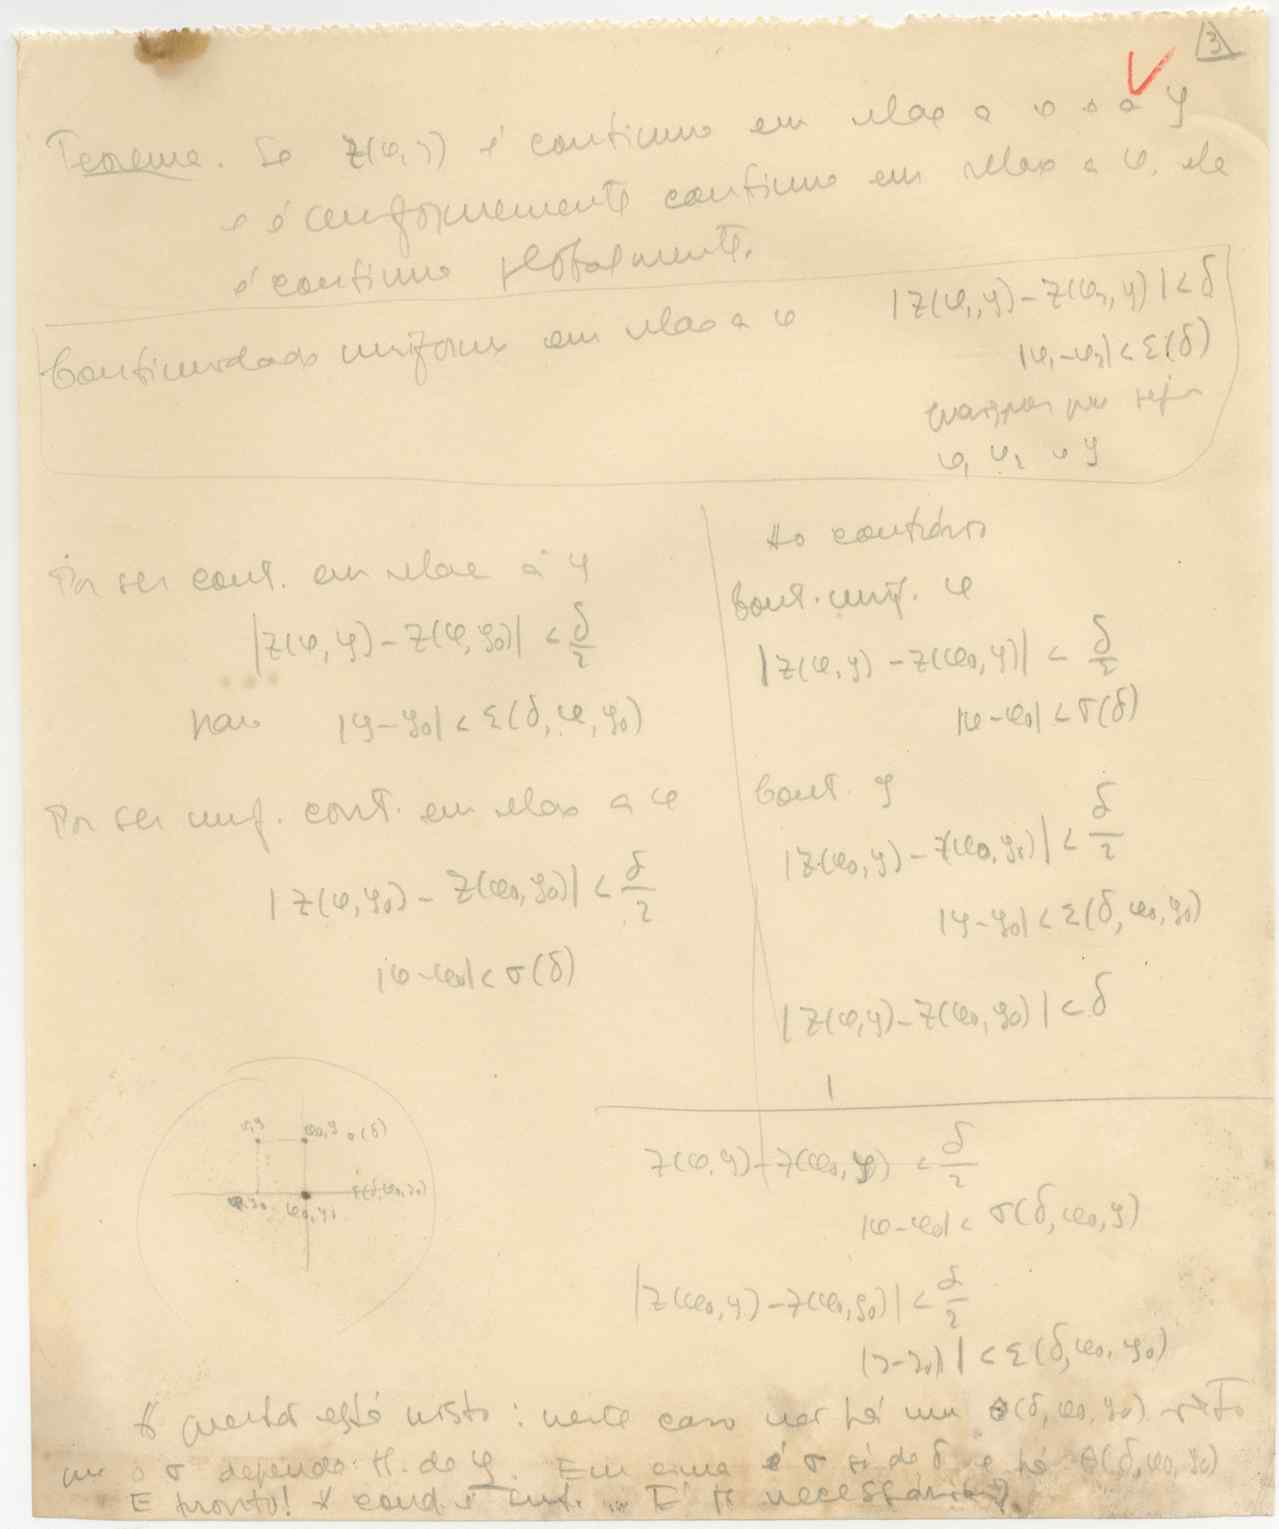 3
Teorema. Se z(φ,y) é continuo em relação a φ e a y
e é uniformemente continuo em relação a φ, ela
é continua globalmente.
Continuidade uniforme em relação a φ
|z(φ₁,y) - z(φ₂,y)| < δ
|φ₁-φ₂| < ε(δ)
quaisquer que sejam
φ₁ φ₂ e y
Por ser cont. em relação a y
|z(φ,y) - z(φ,y₀)| < δ/2
para |y-y₀| < ε(δ,φ,y₀)
Por ser unif. cont. em relação a φ
|z(φ,y₀) - z(φ₀,y₀)| < δ/2
|φ-φ₀| < σ(δ)
Ao contrário
Cont. unif. φ
|z(φ,y) - z(φ₀,y)| < δ/2
|φ-φ₀| < σ(δ)
Cont. y
|z(φ₀,y) - z(φ₀,y₀)| < δ/2
|y-y₀| < ε(δ,φ₀,y₀)
|z(φ,y) - z(φ₀,y₀)| < δ
φ,y φ₀,y σ(δ)
φ,y₀ φ₀,y₀ ε(δ,φ₀,y₀)
z(φ,y) - z(φ₀,y) < δ/2
|φ-φ₀| < σ(δ,φ₀,y)
|z(φ₀,y) - z(φ₀,y₀)| < δ/2
|y-y₀| < ε(δ,φ₀,y₀)
A questão está nisto: neste caso não há um θ(δ,φ₀,y₀)
que o σ depende de y. Em cima é σ só de δ e há θ(δ,φ₀,y₀)
E pronto! A cond. é suf. ... É necessária?